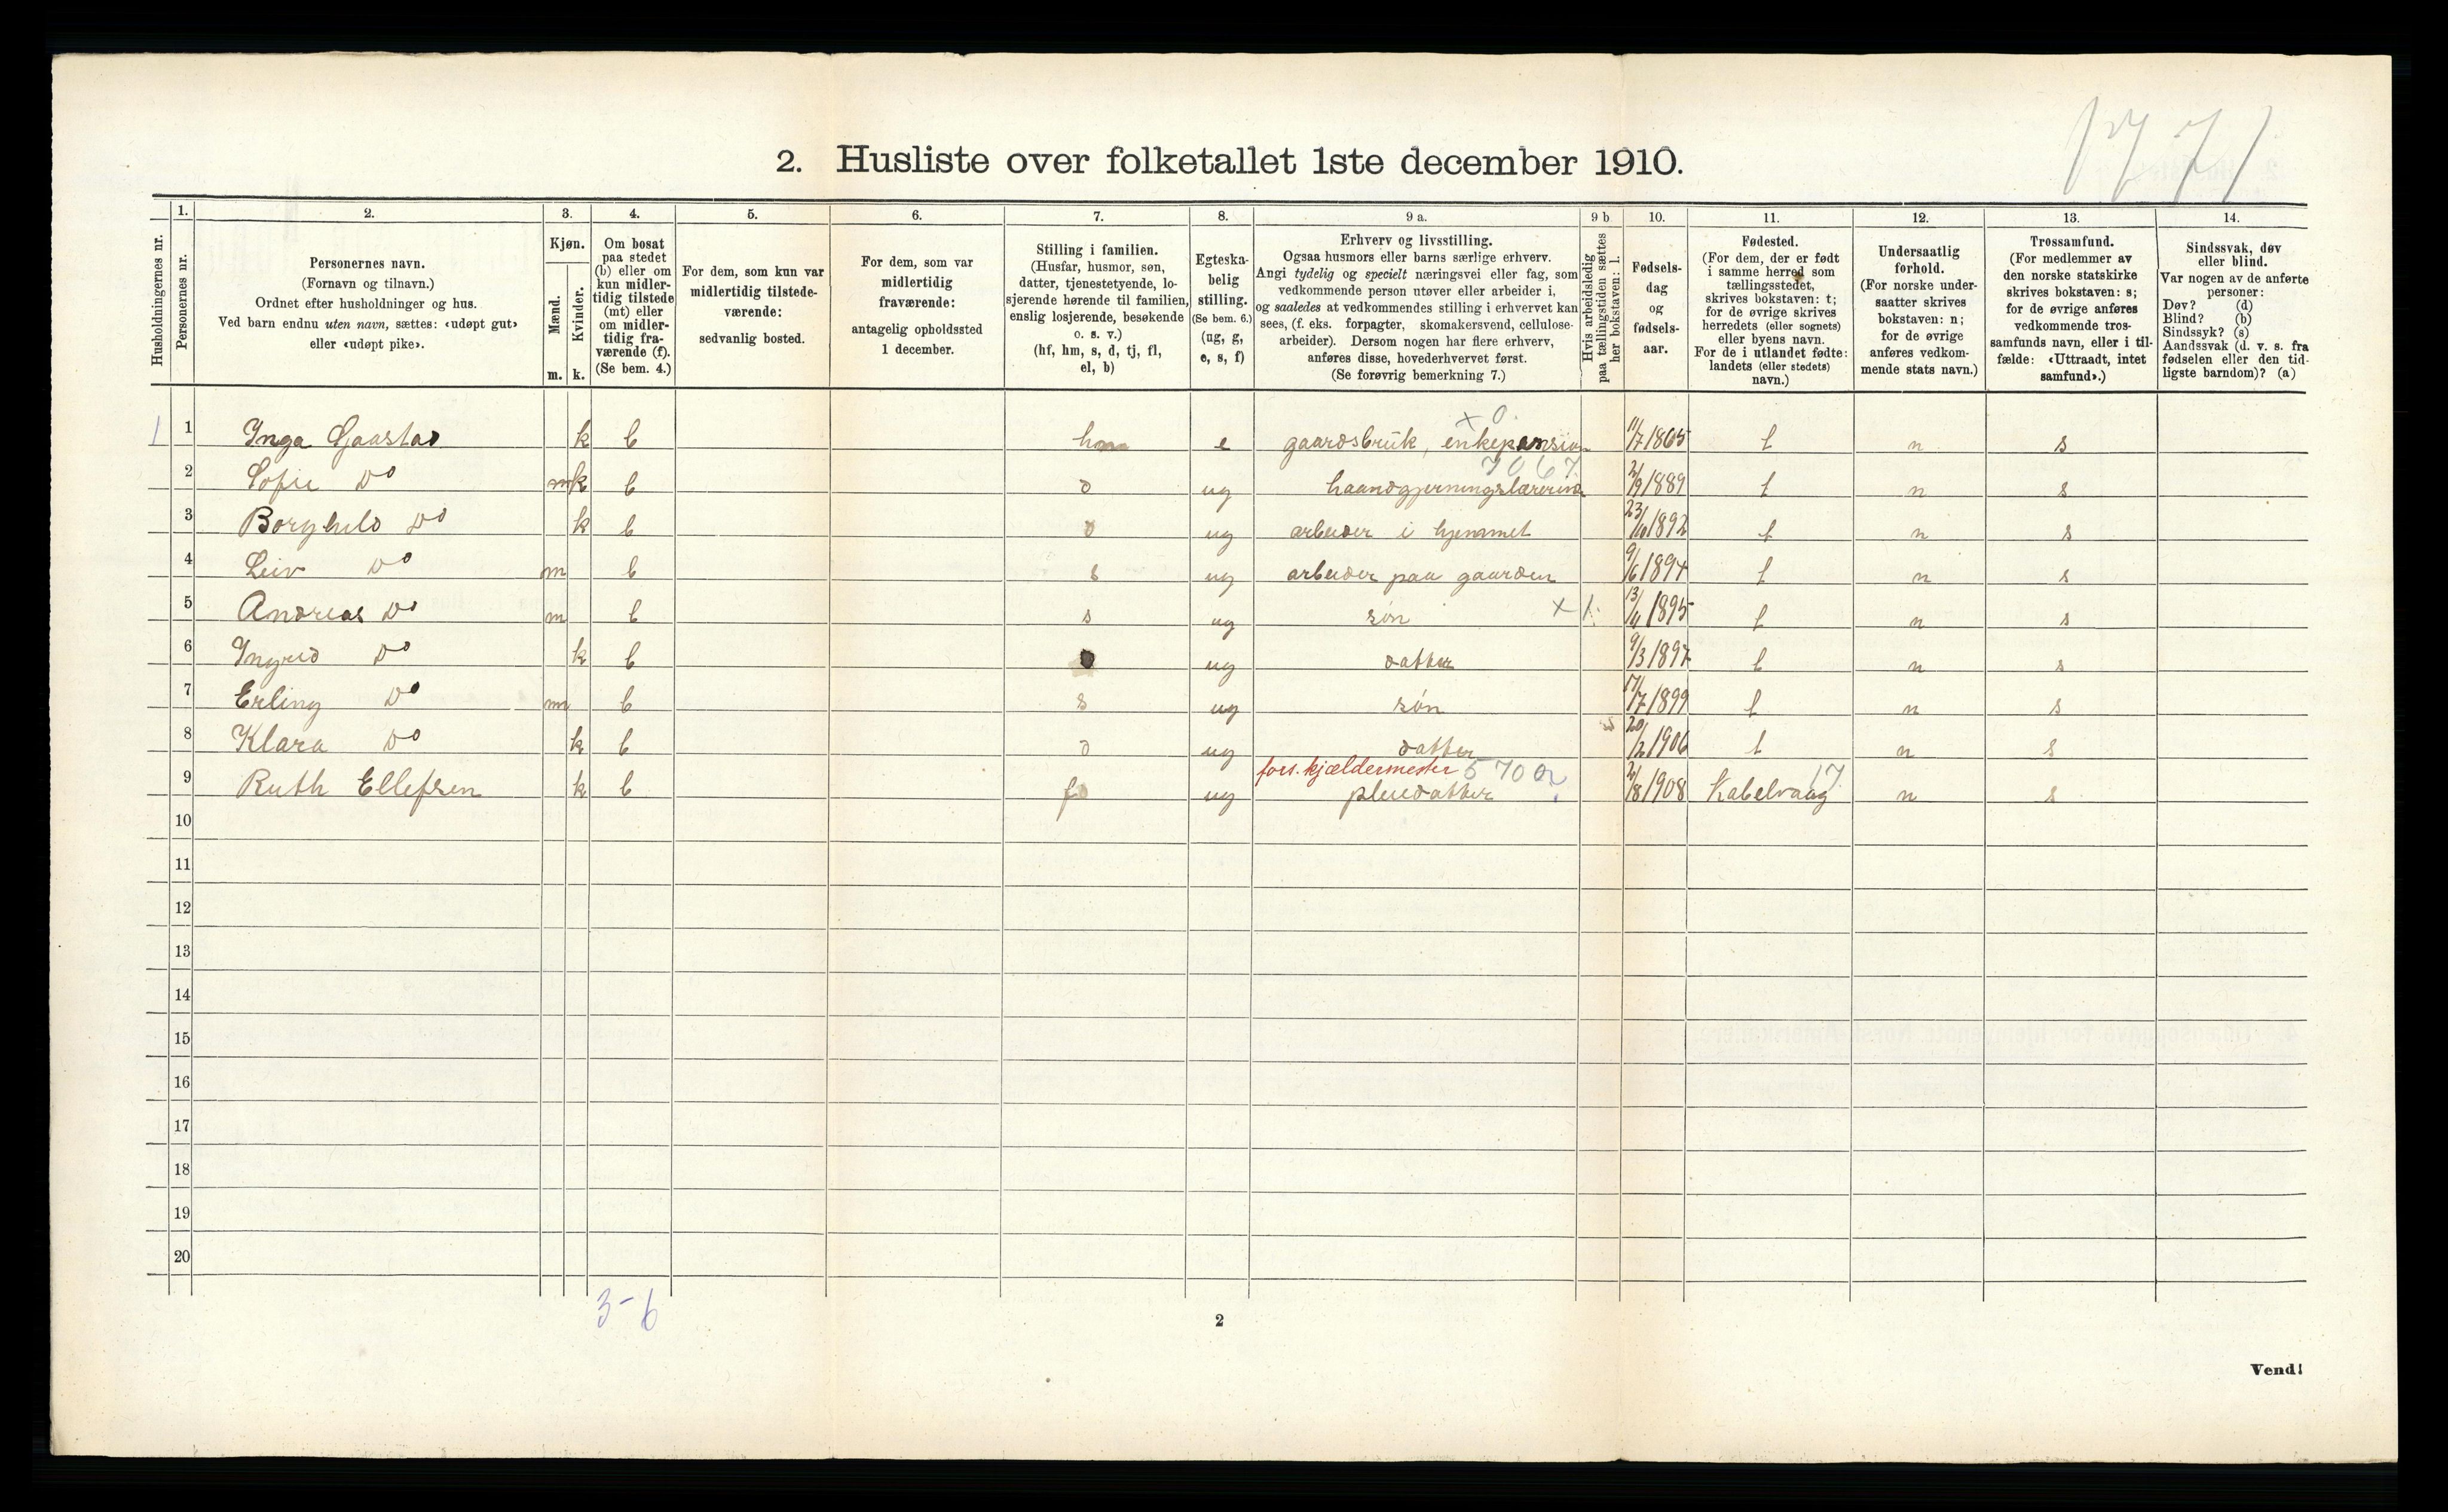 1771
2. Husliste over folketallet 1ste december 1910.
Husholdningernes nr.
1. Personernes nr.
2. Personernes navn.
(Fornavn og tilnavn.)
Ordnet efter husholdninger og hus.
Ved barn endnu uten navn, sættes: «udøpt gut»
eller «udøpt pike».
3. Kjøn.
Mænd. m.
Kvinder. k.
4. Om bosat
paa stedet
(b) eller om
kun midler-
tidig tilstede
(mt) eller
om midler-
tidig fra-
værende (f).
(Se bem. 4.)
5. For dem, som kun var
midlertidig tilstede-
værende:
sedvanlig bosted.
6. For dem, som var
midlertidig
fraværende:
antagelig opholdssted
1 december.
7. Stilling i familien.
(Husfar, husmor, søn,
datter, tjenestetyende, lo-
sjerende hørende til familien,
enslig losjerende, besøkende
o. s. v.)
(hf, hm, s, d, tj, fl,
el, b)
8. Egteska-
belig
stilling.
(Se bem. 6.)
(ug, g,
e, s, f)
9 a. Erhverv og livsstilling.
Ogsaa husmors eller barns særlige erhverv.
Angi tydelig og specielt næringsvei eller fag, som
vedkommende person utøver eller arbeider i,
og saaledes at vedkommendes stilling i erhvervet kan
sees, (f. eks. forpagter, skomakersvend, cellulose-
arbeider). Dersom nogen har flere erhverv,
anføres disse, hovederhvervet først.
(Se forøvrig bemerkning 7.)
9 b Hvis arbeidsledig
paa tællingstiden sættes
her bokstaven: l.
10. Fødsels-
dag
og
fødsels-
aar.
11. Fødested.
(For dem, der er født
i samme herred som
tællingsstedet,
skrives bokstaven: t;
for de øvrige skrives
herredets (eller sognets)
eller byens navn.
For de i utlandet fødte:
landets (eller stedets)
navn.)
12. Undersaatlig
forhold.
(For norske under-
saatter skrives
bokstaven: n;
for de øvrige
anføres vedkom-
mende stats navn.)
13. Trossamfund.
(For medlemmer av
den norske statskirke
skrives bokstaven: s;
for de øvrige anføres
vedkommende tros-
samfunds navn, eller i til-
fælde: «Uttraadt, intet
samfund».)
14. Sindssvak, døv
eller blind.
Var nogen av de anførte
personer:
Døv? (d)
Blind? (b)
Sindssyk? (s)
Aandssvak (d. v. s. fra
fødselen eller den tid-
ligste barndom)? (a)
x 0.
1 1 Inga Gaastad k b hm e gaardsbruk, enkepension 11/7 1865 t n s
7067
2 Sofie Do mk b d ug haandgjerningslærerinde 2/9 1889 t n s
3 Borghild Do k b d ug arbeider i hjemmet 23/10 1892 t n s
4 Leiv Do m b s ug arbeider paa gaarden 9/6 1894 t n s
5 Andreas Do m b s ug søn x 1. 13/11 1895 t n s
6 Ingrid Do k b ug datter 9/3 1897 t n s
7 Erling Do m b s ug søn 17/7 1899 t n s
8 Klara Do k b d ug datter 20/2 1906 t n s
fors. kjældermester 570 17
9 Ruth Ellefsen k b fd ug pleiedatter 2/8 1908 Kabelvaag n s
10
11
12
13
14
15
16
17
18
19
20
3-6
2
Vend!